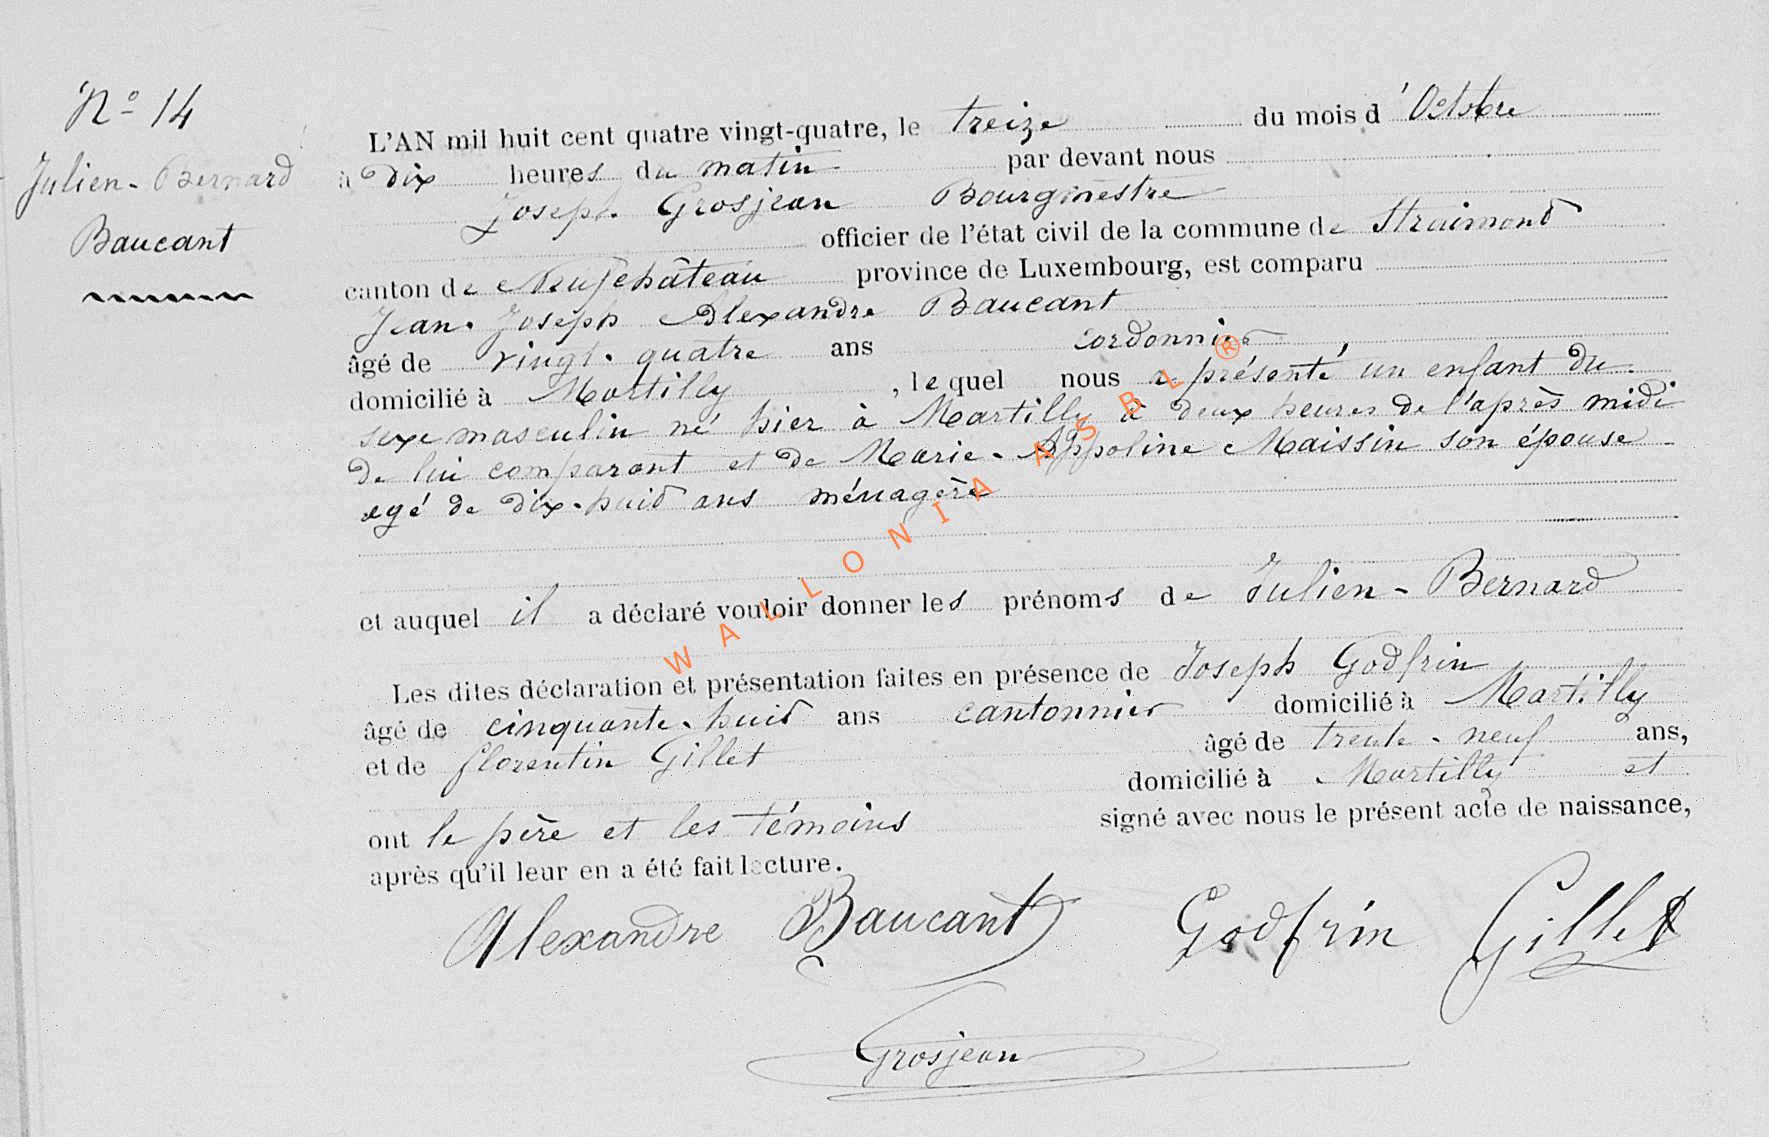 N° 14
Julien-Bernard
Baucant
L'AN mil huit cent quatre vingt-quatre, le treize du mois d'Octobre
à dix heures du matin par devant nous
Joseph Grosjean Bourgmestre
officier de l'état civil de la commune de Straimont
canton de Neufchâteau province de Luxembourg, est comparu
Jean-Joseph Alexandre Baucant
âgé de vingt-quatre ans cordonnier
domicilié à Martilly, lequel nous a présenté un enfant du
sexe masculin né hier à Martilly à deux heures de l'après midi
de lui comparant et de Marie-Appoline Maissin son épouse
agé de dix-huit ans ménagère
et auquel il a déclaré vouloir donner les prénoms de Julien-Bernard
Les dites déclaration et présentation faites en présence de Joseph Godfrin
âgé de cinquante-huit ans cantonnier domicilié à Martilly
et de florentin Gillet âgé de trente-neuf ans,
domicilié à Martilly et
ont le père et les témoins signé avec nous le présent acte de naissance,
après qu'il leur en a été fait lecture.
Alexandre Baucant Godfrin Gillet
Grosjean
WALLONIA ASBL ®